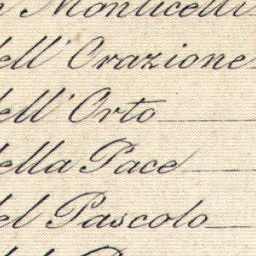 Monticelli
dell' Orazione
dell' Orto
della Pace
del Pascolo